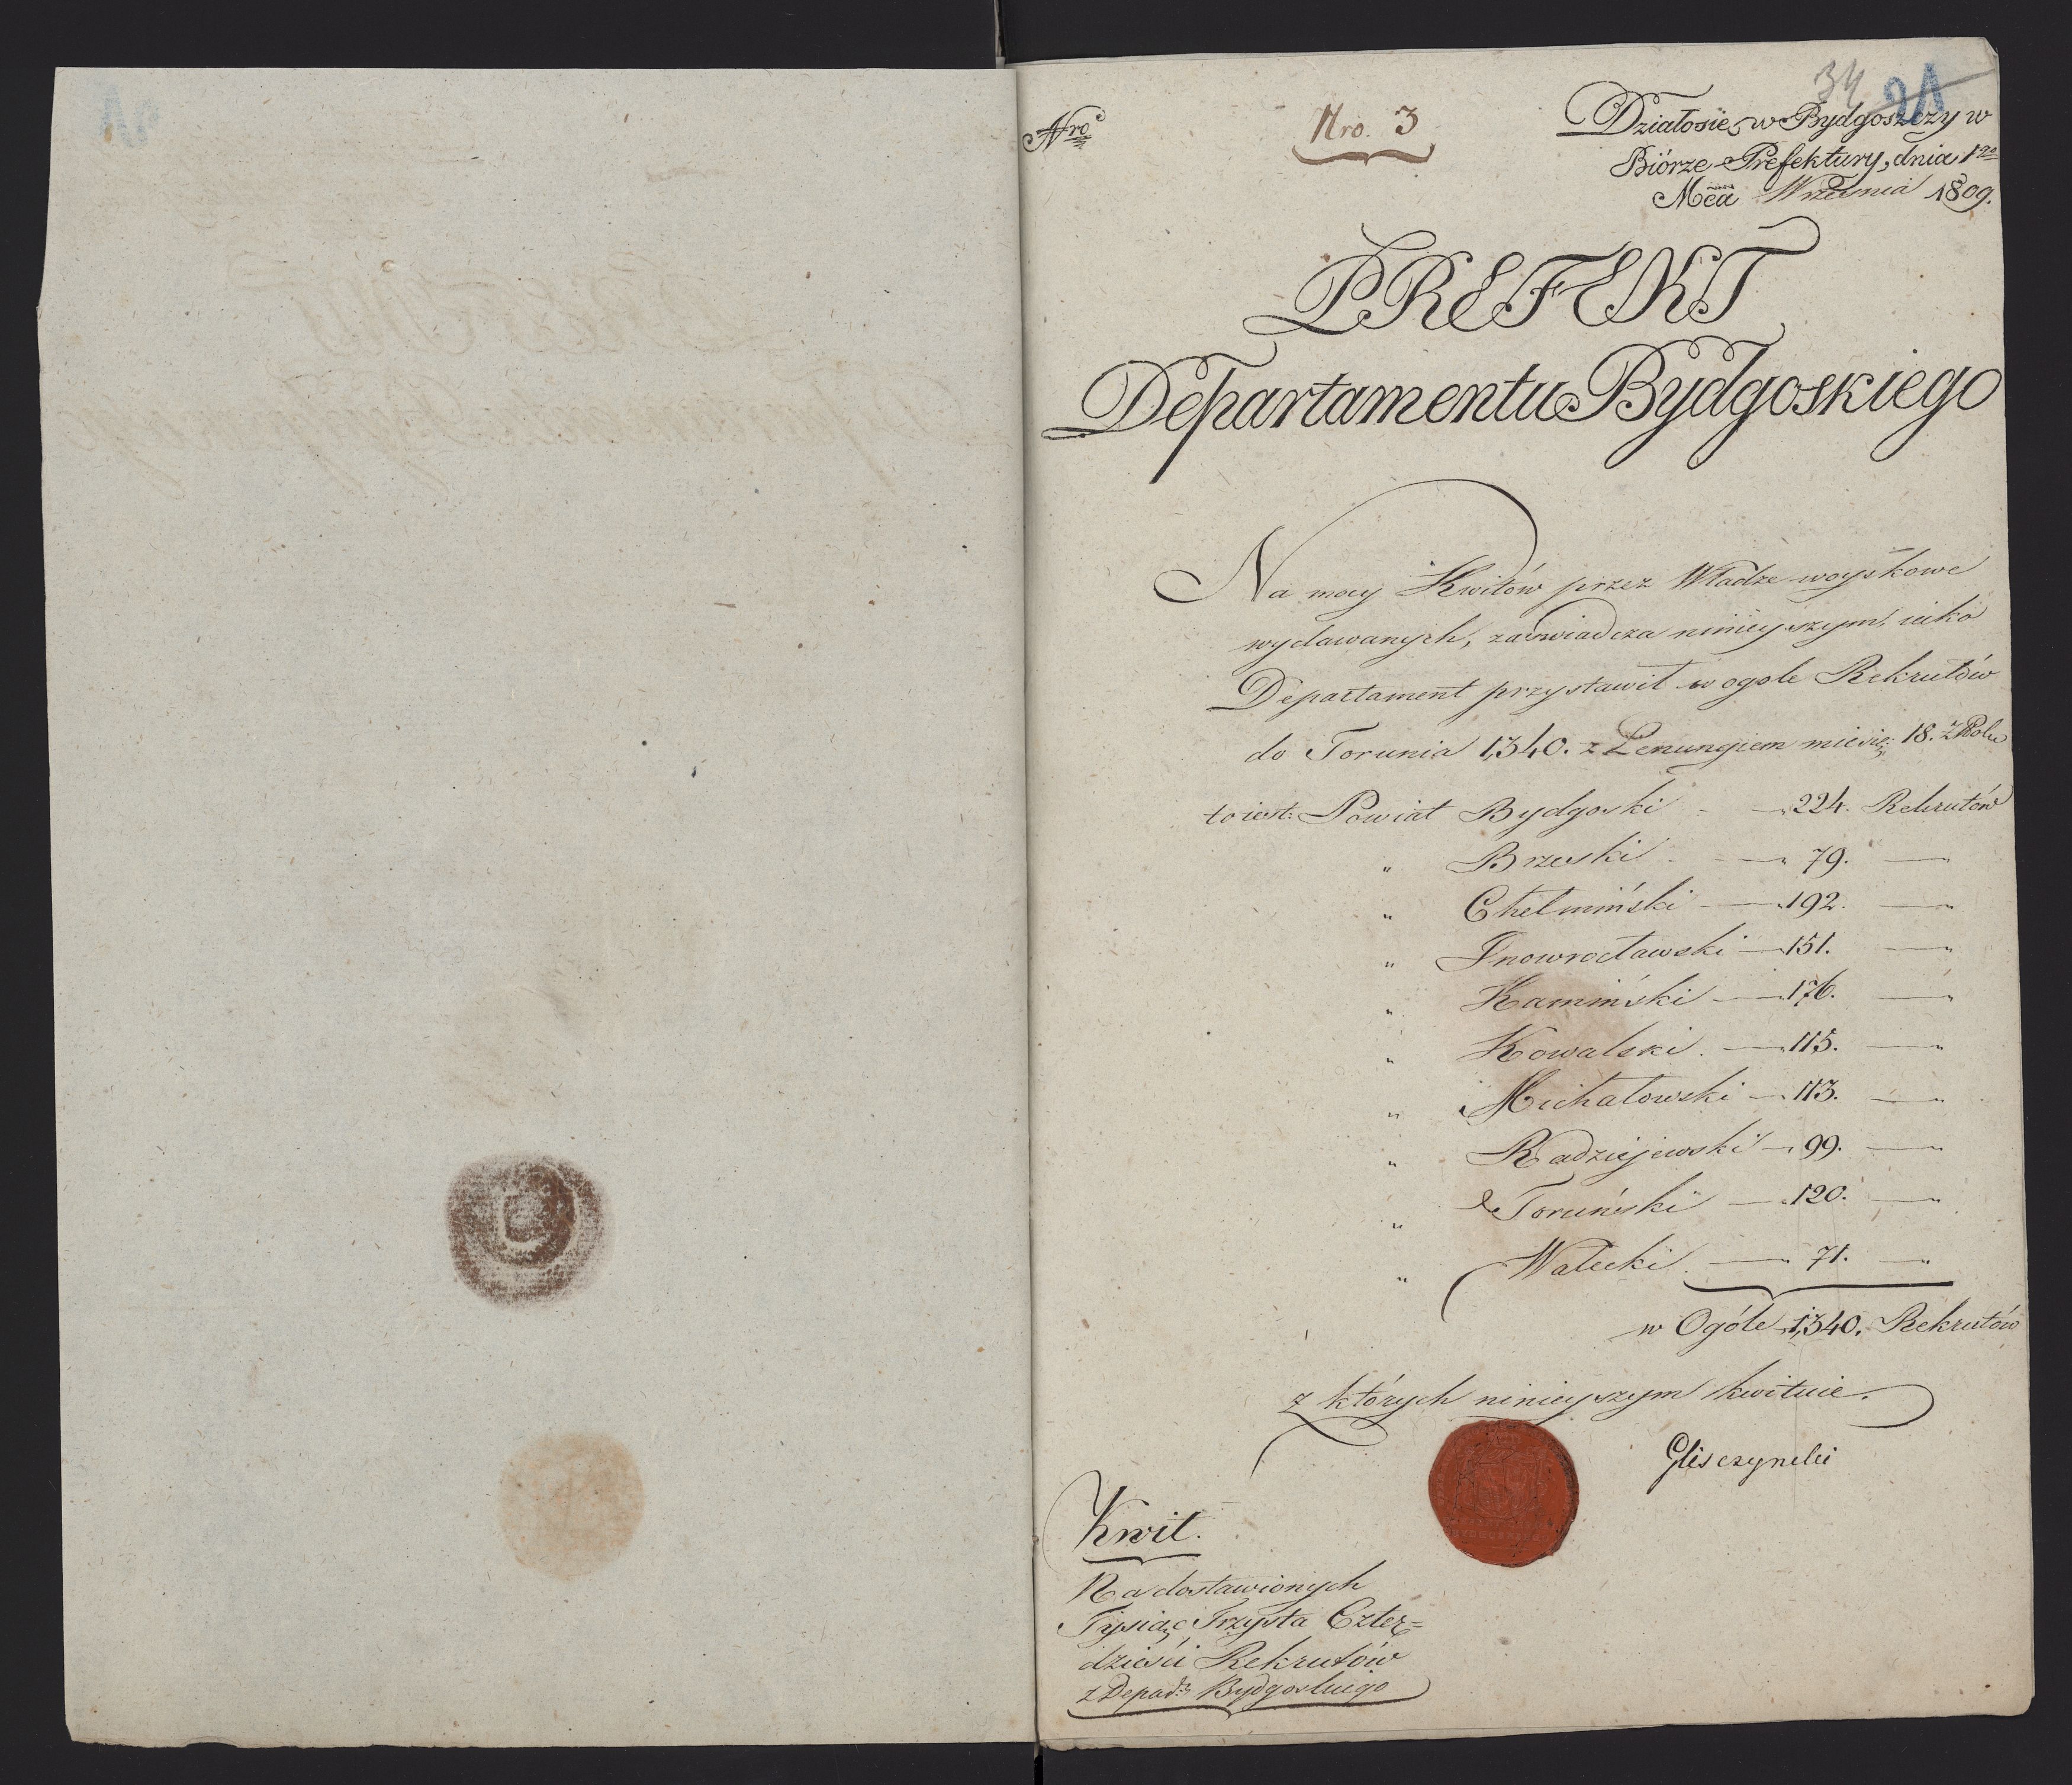 34 21
Nro
Nro. 3
Działosię w Bydgoszczy w
Biórze Prefektury, dnia 1go
Mca Września 1809.
PREFEKT
Departamentu Bydgoskiego
Na mocy Kwitów przez Władze woyskowe
wydawanych, zaświadcza ninieyszym, iako
Departament przystawił w ogole Rekrutów
do Torunia 1,340. z Lenungiem miesię: 18. zł Pol.
to iest: Powiat Bydgoski - - 224. Rekrutów
" Brzeski - — " 79. — "
" Chełmiński - — " 192. — "
" Inowrocławski — " 151. — "
" Kamiński — " 176. — "
" Kowalski. — " 115. — "
" Michałowski — " 113. — "
" Radziejewski — " 99. — "
" Toruński — " 120. — "
" Wałecki. — " 71. — "
w Ogóle 1,340. Rekrutów
z których ninieyszym kwituie.
Gliszczynski
Kwit.
Na dostawionych
Tysiąc Trzysta Czter=
dzieści Rekrutów
z Depart: Bydgoskiego